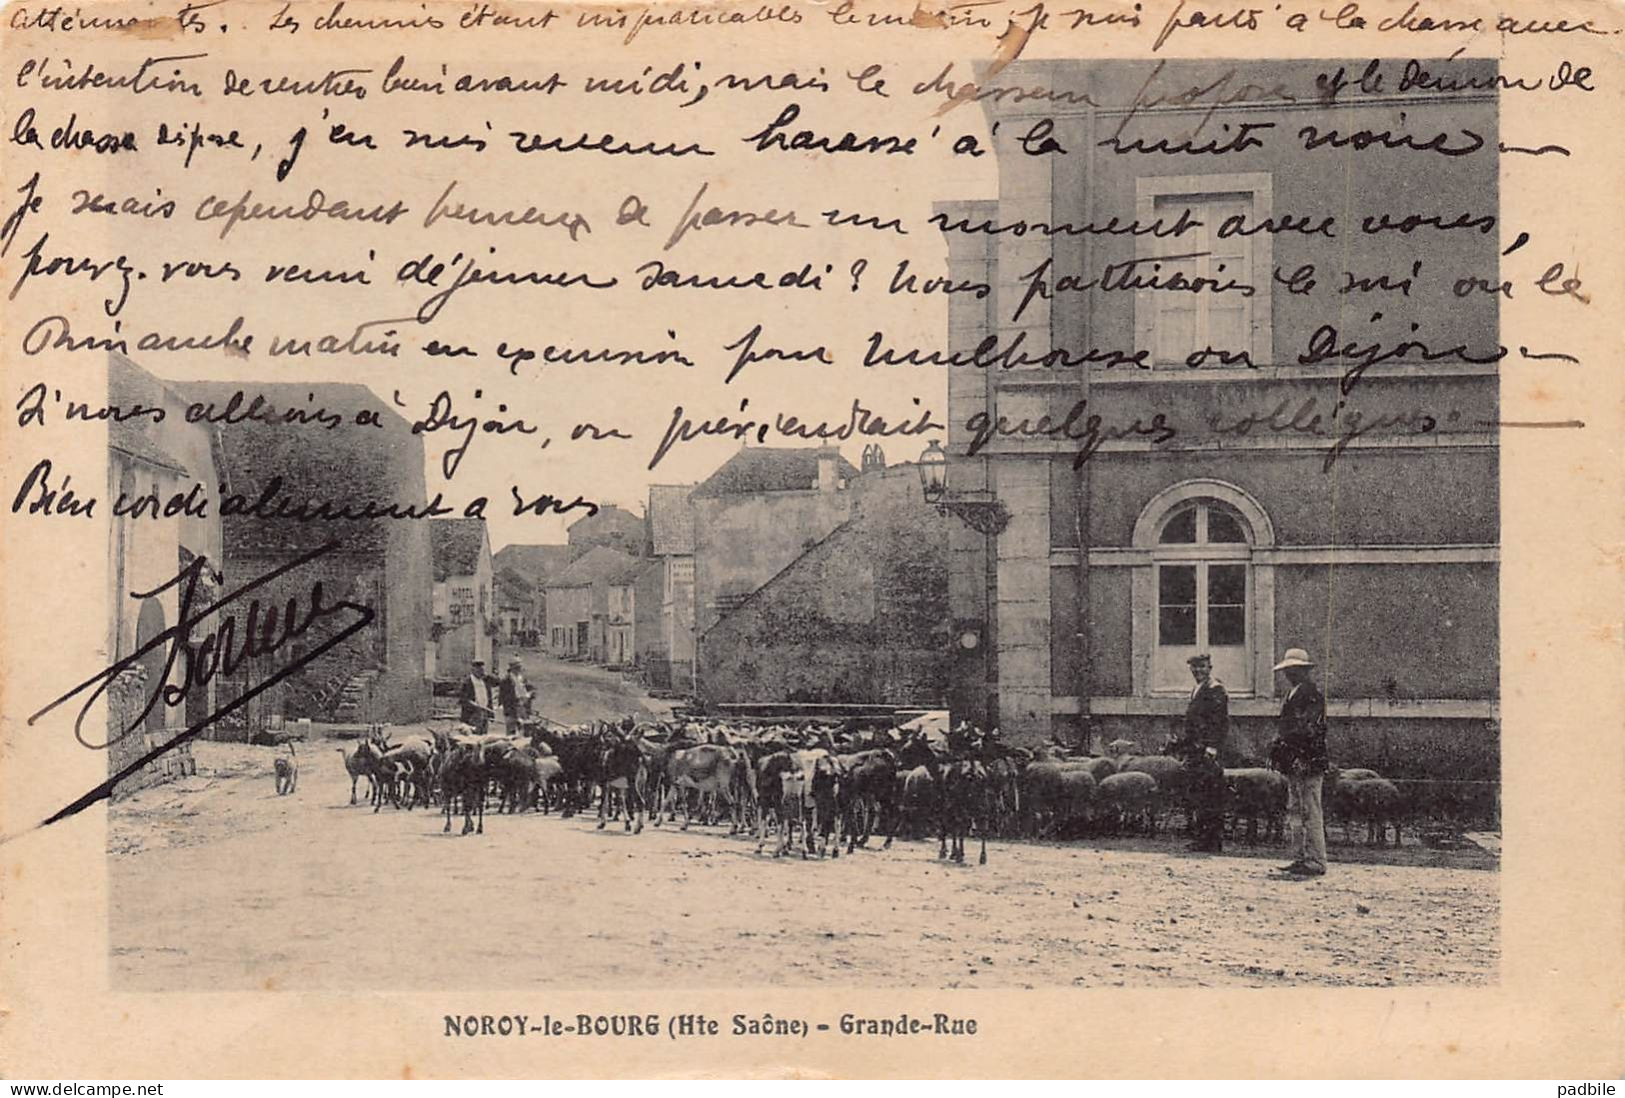 atténuantes. Les chemins étant impraticables le matin, je suis parti à la chasse avec
l'intention de rentrer bien avant midi, mais le chasseur propose et le démon de
la chasse dispose, j'en suis revenu harassé à la nuit noire —
Je serais cependant heureux de passer un moment avec vous,
pouvez-vous venir déjeuner samedi ? Nous partirions le soir ou le
Dimanche matin en excursion pour Mulhouse ou Dijon —
Si nous allions à Dijon, on préviendrait quelques collègues. —
Bien cordialement à vous
HOTEL
NOROY-le-BOURG (Hte Saône) - Grande-Rue
delcampe.net
padbile